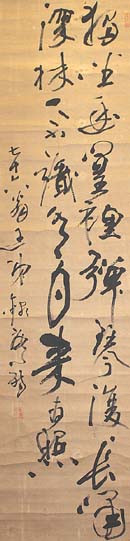 獨坐幽篁裡彈琴復長嘯
深林人不識明月来相照
七十翁